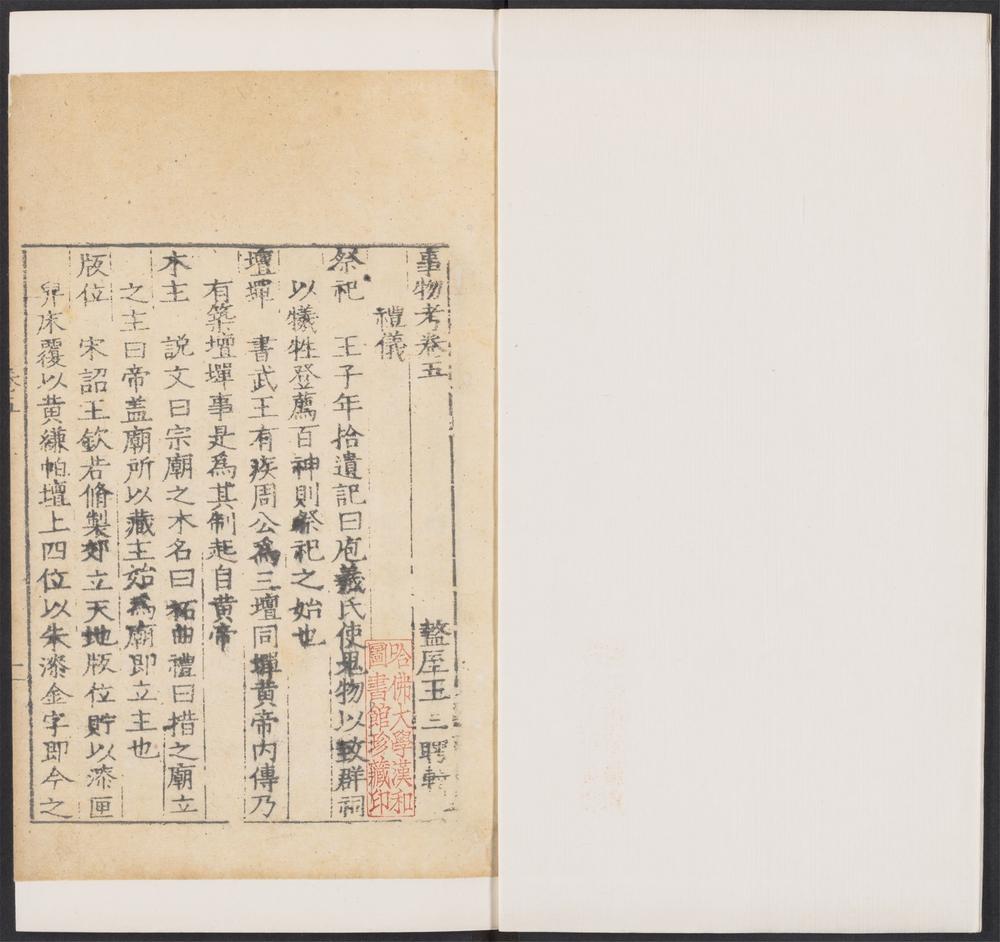 事物考卷五
盩厔王三聘輯
禮儀
祭祀　王子年拾遺記曰庖羲氏使鬼物以致群祠
以犧牲登薦百神則祭祀之始也
壇墠　書武王有疾周公爲三壇同墠黄帝内傳乃
有築壇墠事是爲其制起自黄帝
木主　説文曰宗廟之木名曰祏曲禮曰措之廟立
之主曰帝盖廟所以藏主始爲廟即立主也
版位　宋詔王欽若脩製郊立天地版位貯以漆匣
舁床覆以黄縑帕壇上四位以朱漆金字即今之
哈佛大學漢和
圖書館珍藏印